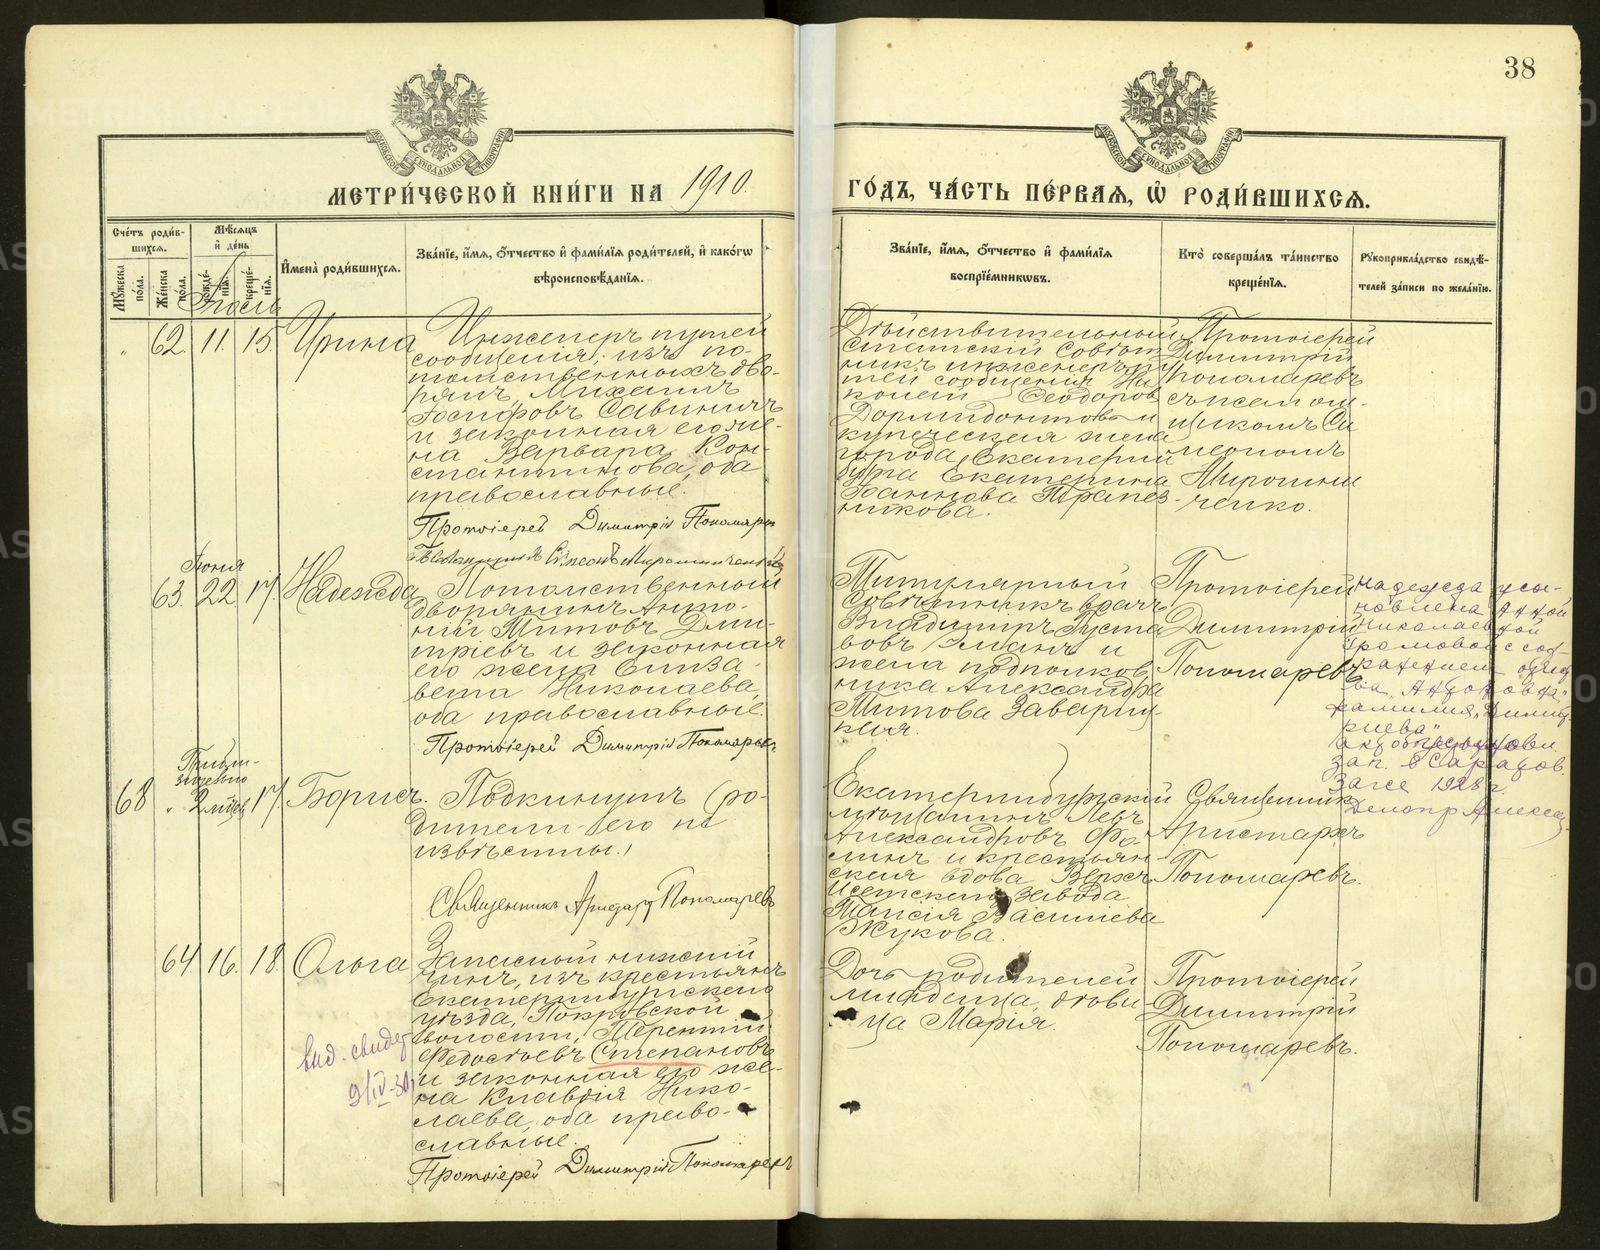 38
МЕТРИ́ЧЕСКОЙ КНИ́ГИ НА 1910.
ГО́ДЪ, ЧА́СТЬ ПЕ́РВАЯ, Ѡ҆ РОДИ́ВШИХСЯ.
Сче́тъ роди́вшихся.
Мѣ́сяцъ и҆ де́нь
И҆мена̀ роди́вшихся.
Зва́нїе, и҆́мя, ѻ҆́тчество и҆ фами́лїя роди́телей, и҆ како́гѡ
вѣроисповѣ́данїя.
Зва́нїе, и҆́мя, ѻ҆́тчество и҆ фами́лїя
воспрїе́мниковъ.
Кто̀ соверша́лъ та́инство
креще́нїя.
Рꙋкоприкла́дство свидѣ́-
телей за́писи по жела́нїю.
Мꙋ́жеска по́ла.
Же́нска по́ла.
рожде́нїя.
креще́нїя.
Іюль
62. 11. 15. Ирина
Инженеръ путей
сообщенія, изъ по-
томственныхъ дво-
рянъ, Михаилъ
Іосифовъ Савиничъ
и законная его же-
на Варвара Кон-
стантинова, оба
православные.
Протоіерей Димитрій Пономаревъ
Дѣйствительный
статскій совѣт-
никъ инженеръ пу
тей сообщенія Ни
колай Ѳеодоров
Дормидонтовъ и
купеческая жена
города Екатерин
бурга Екатерина
Іоаннова Трапез-
никова.
Протоіерей
Димитрій
Пономаревъ
съ псаломщикомъ Си
меономъ
Мирошни
ченко.
Іюня
63. 22 17. Надежда
Потомственный
дворянинъ Анто-
ній Титовъ Дми-
тріевъ и законная
его жена Елиза-
вета Николаева,
оба православные.
Протоіерей Димитрій Пономаревъ
Титулярный
Совѣтникъ врачъ
Владимиръ Густа
вовъ и
жена подполков
ника Александра
Титова Завариц-
кая.
Протоіерей
Димитрій
Пономаревъ
Надежда усы-
новлена Анной
Николаевной
Громовой с сох-
ранением отчест-
ва „Антоновна"
фамилия „Димит-
риева"
зап. в Саратов.
Загсе 1928 г.
68 17. Борисъ.
Подкинутъ (ро-
дители его не
извѣстны.)
Священникъ Аристархъ Пономаревъ
Екатеринбургскій
мѣщанинъ Левъ
Александровъ Фо-
линъ и крестьян-
ская вдова Верхъ
Исетскаго завода
Таисія Василіева
Жукова.
Священникъ
Аристархъ
Пономаревъ.
64. 16. 18. Ольга
Запасной нижній
чинъ, изъ крестьянъ
Екатеринбургскаго
уѣзда, Покровской
волости, Терентій
Федосѣевъ Степановъ
и законная его же-
на Клавдія Нико-
лаева, оба право-
славные.
Протоіерей Димитрій Пономаревъ
Дочь родителей
младенца, дѣви-
ца Марія.
Протоіерей
Димитрій
Пономаревъ.
выд. свидет
9/IV-30
METRIKI.GASO-URAL.RU